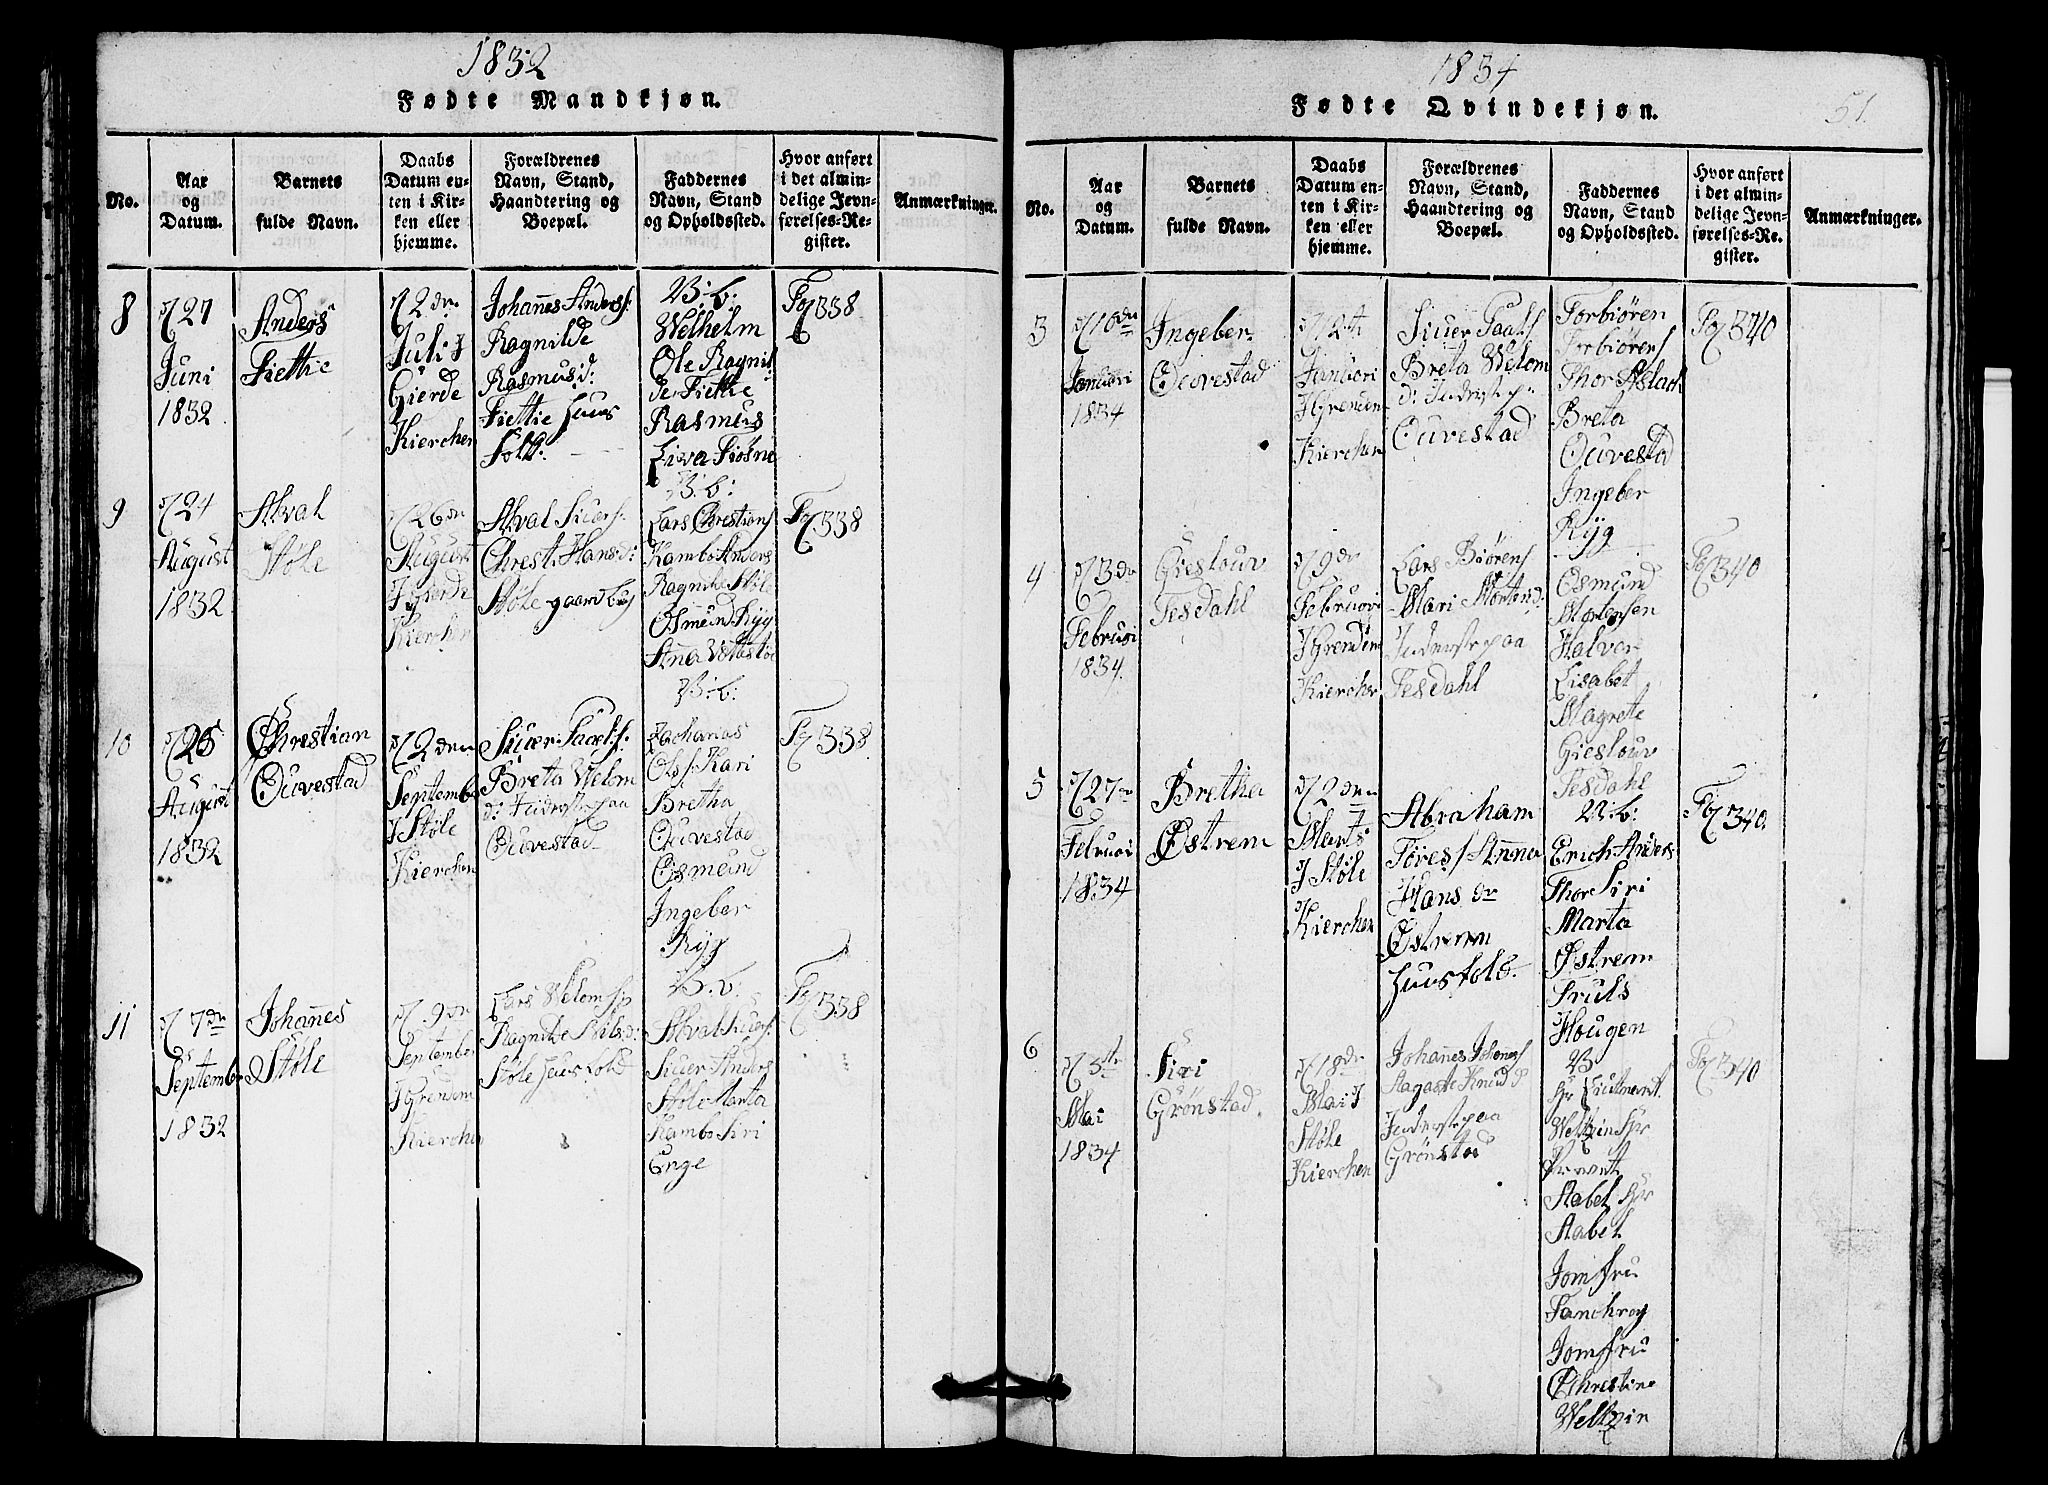 1832
Fødte Mandkjøn.
No.
Aar
og
Datum.
Barnets
fulde Navn.
Daabs
Datum en-
ten i Kir-
ken eller
hjemme.
Forældrenes
Navn, Stand,
Haandtering og
Boepæl.
Faddernes
Navn, Stand
og Opholdssted.
Hvor anført
i det almin-
delige Jevn-
førelses-Re-
gister.
Anmærkninger.
8
27
Juni
1832
Anders
Fiettie
2den
Julij
Gierde
Kierchen
Johannes Anders:
Ragnilde
Rasmusd:
Fiettie Huus
folk:
B: b:
Welhelm
Ole Ragnil
de Fiettie
Rasmus
Liva Fiøsne
Fol 338
9
24
August
1832
Atval
Støle
26de
August
J Gierde
Kierchen
Atval Siuers:
Chresti Hansd:
Støle gaardbrug
B: b:
Lars Chrestians
Kambe Anders
Ragnilde Støle
Osmund Ryg
Anna Vattestøe
Fol 338
10
25
August
1832
Chrestian
Ouvestad
2den
Septembe
J Støle
Kierchen
Siuer Paals:
Breta Welom
d: Inderst paa
Ouvestad
B: b:
Zacharias
Ols: Kari
Bretha
Ouvestad
Osmund
Ingeber
Ryg
Fol 338
11
7de
Septembe
1832
Johannes
Støle
9de
September
J Grendem
Kierchen
Lars Welomss
Ragnilde Nilsd:
Støle Huusfolk
B. b:
Atval Siuers:
Siuer Anders
Støle Marta
Kambe Siri
Enge
Fol 338
1834
Fødte Qvindekjøn.
51.
No.
Aar
og
Datum.
Barnets
fulde Navn.
Daabs
Datum en-
ten i Kir-
ken eller
hjemme.
Forældrenes
Navn, Stand,
Haandtering og
Boepæl.
Faddernes
Navn, Stand
og Opholdssted.
Hvor anført
i det almin-
delige Jevn-
førelses-Re-
gister.
Anmærkninger.
3
10de
Januari
1834
Ingeber
Ouvestad
12te
Januari
J Grendem
Kierchen
Siuer Paals
Breta Welom
d: Inderst p:
Ouvestad
Torbiøren
Torbiørens
Thor Aslach
Breta
Ouvestad
Ingeber
Ryg
Fol 340
4
3de
Februari
1834.
Gieslouv
Tesdahl
9de
Februari
J Grendem
Kierchen
Lars Biørens
Mari Mortensd:
Inderst paa
Tesdahl
Osmund
Mortensen
Halver
Lisabet
Magrete
Gieslouv
Tesdahl
Fol 340
5
27de
Februari
1834
Bretha
Østrem
2den
Marts
J Støle
Kierchen
Abraham
Tøress Anna
Hans dr
Østrem
Huusfolk.
B: b:
Erich Anders
Thor Siri
Marta
Østrem
Truls
Hougen
Fol 340.
6
5te
Mai
1834
Siri
Grønstad.
18de
Mai J
Støle
Kierchen
Johannes Johanes
Aagaate Knud d
Inderst paa
Grønstad
B
Hr Lieutnant
Weltzin Hr
Stabel Hr
Stabel
Jomfru
Jomfru
Chrestine
Weltzin
Fol 340